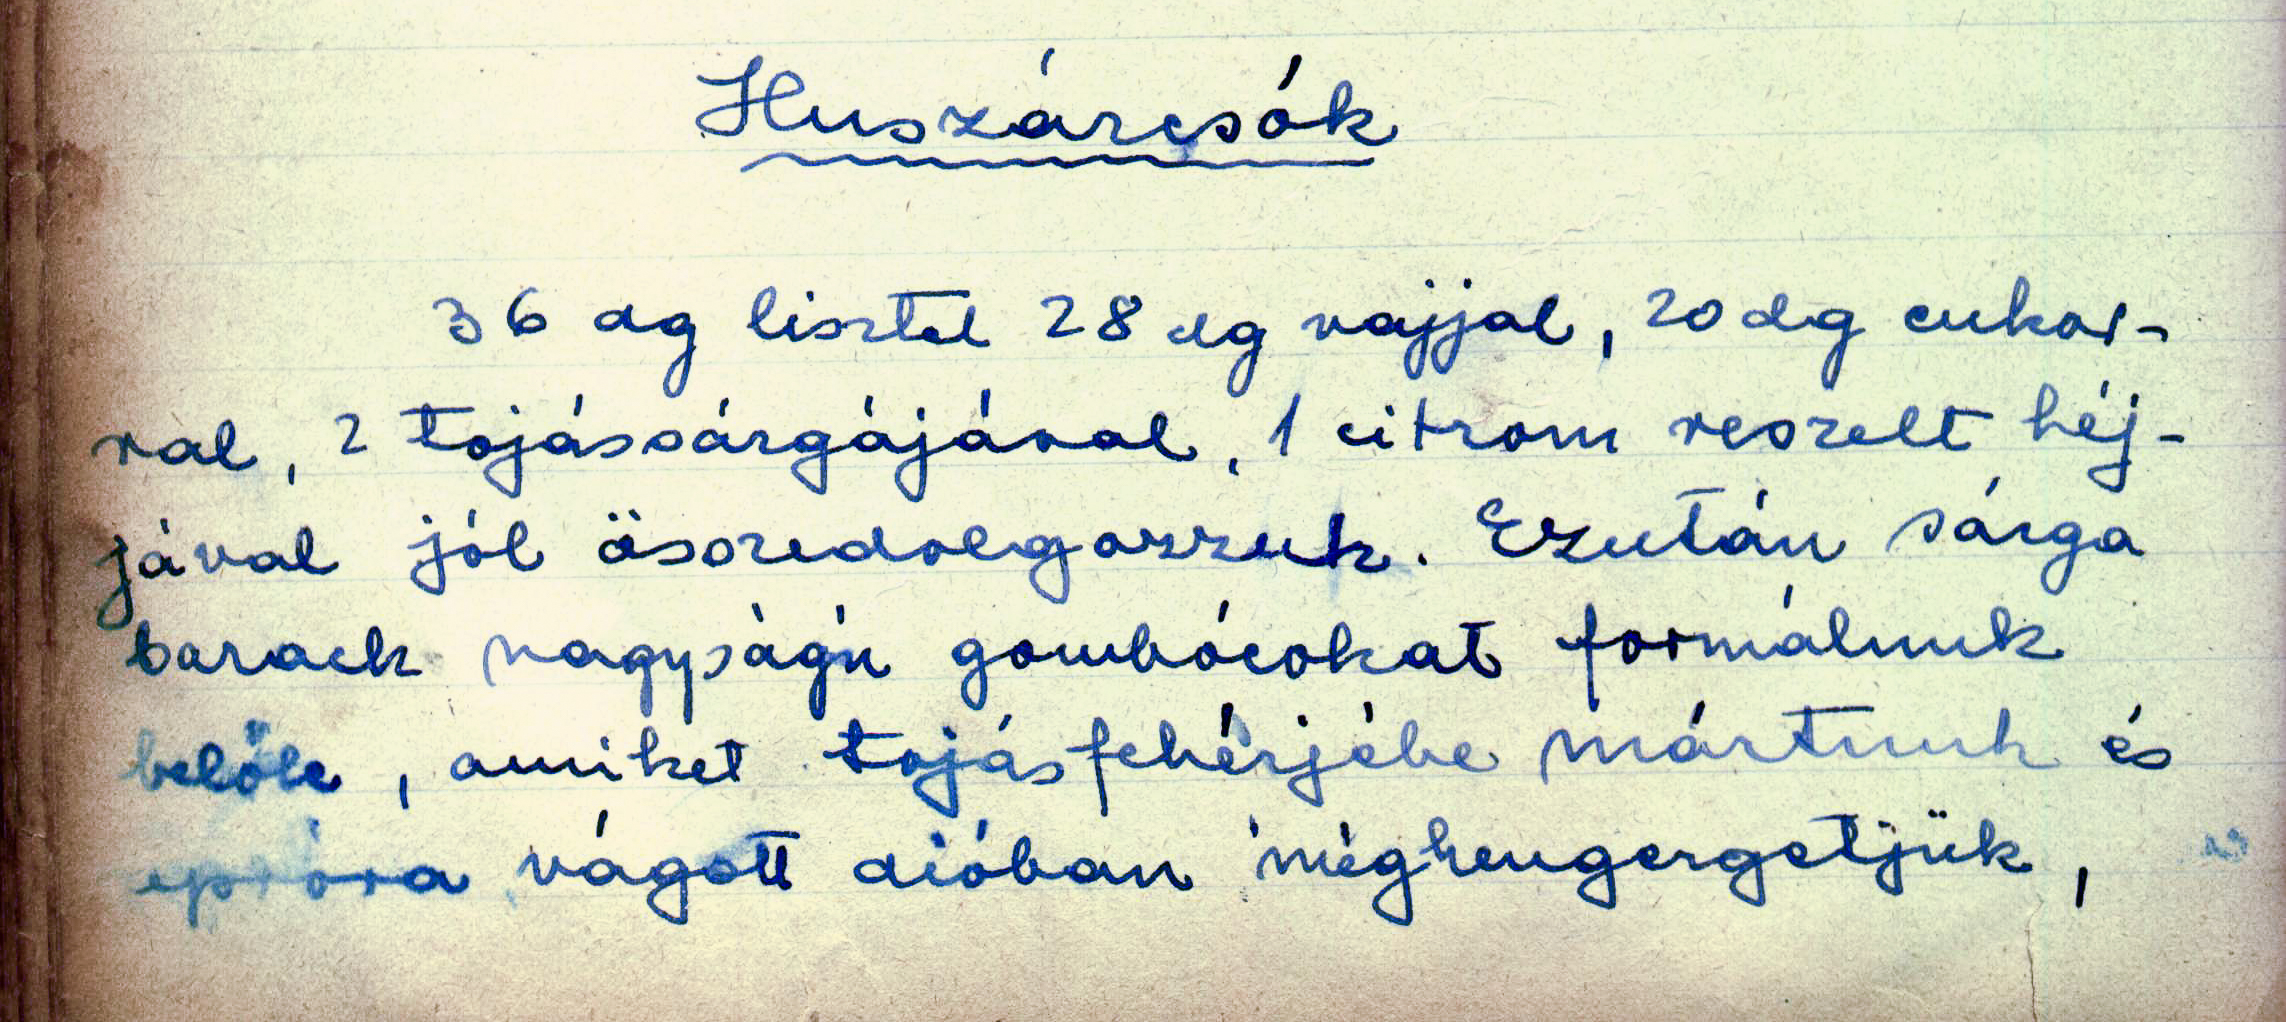 Huszárcsók
36 dg lisztet 28 dg vajjal, 20 dg cukor-
ral, 2 tojássárgájával, 1 citrom reszelt héj-
jával jól összedolgozzuk. Ezután sárga
barack nagyságú gombócokat formálunk
belőle, amiket tojásfehérjébe mártunk és
apróra vágott dióban méghengergetjük,